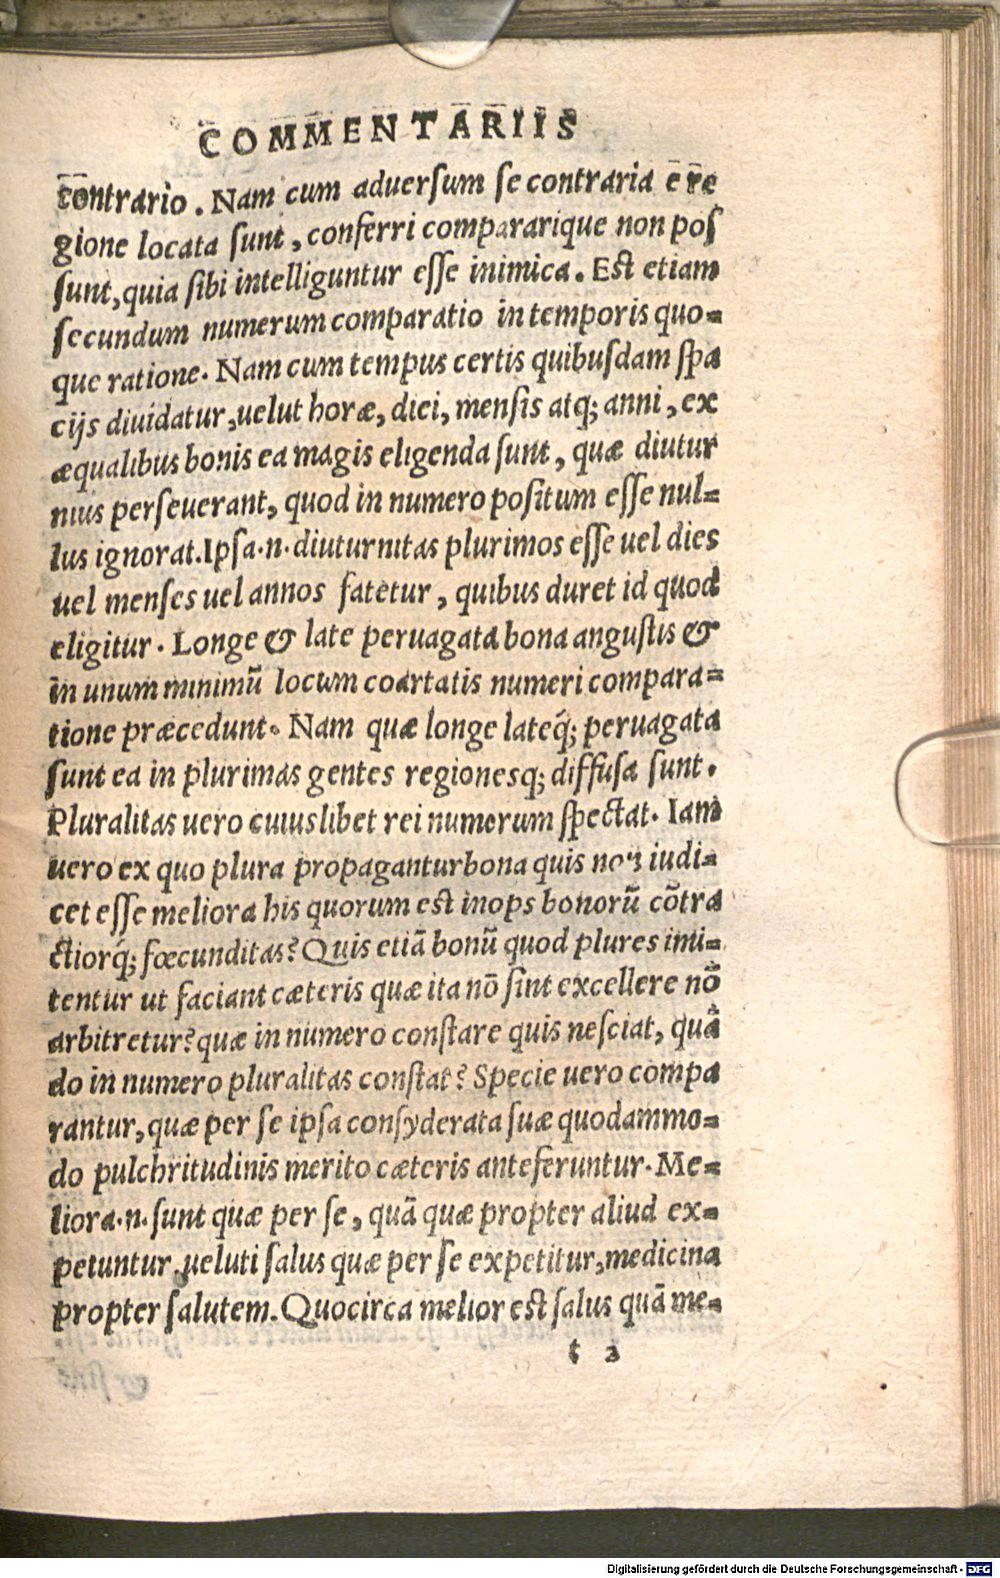 COMMENTARIIS
contrario. Nam cum aduersum se contraria e re
gione locata sunt, conferri compararique non pos
sunt, quia sibi intelliguntur esse inimica. Est etiam
secundum numerum comparatio in temporis quo=
que ratione. Nam cum tempus certis quibusdam spa
cijs diuidatur, uelut horæ, diei, mensis atq; anni, ex
æqualibus bonis ea magis eligenda sunt, quæ diutur
nius perseuerant, quod in numero positum esse nul=
lus ignorat. Ipsa .n. diuturnitas plurimos esse uel dies
uel menses uel annos fatetur, quibus duret id quod
eligitur. Longe & late peruagata bona angustis &
in unum minimū locum coartatis numeri compara=
tione præcedunt. Nam quæ longe lateq́; peruagata
sunt ea in plurimas gentes regionesq; diffusa sunt.
Pluralitas uero cuiuslibet rei numerum spectat. Iam
uero ex quo plura propagantur bona quis non iudi=
cet esse meliora his quorum est inops bonorū cōtra
ctiorq́; fœcunditas? Quis etiā bonū quod plures imi=
tentur ut faciant cæteris quæ ita nō sint excellere nō
arbitretur? quæ in numero constare quis nesciat, quā
do in numero pluralitas constat? Specie uero compa
rantur, quæ per se ipsa consyderata suæ quodammo=
do pulchritudinis merito cæteris anteferuntur. Me=
liora .n. sunt quæ per se, quā quæ propter aliud ex=
petuntur, ueluti salus quæ per se expetitur, medicina
propter salutem. Quocirca melior est salus quā me=
t 2
Digitalisierung gefördert durch die Deutsche Forschungsgemeinschaft - DFG